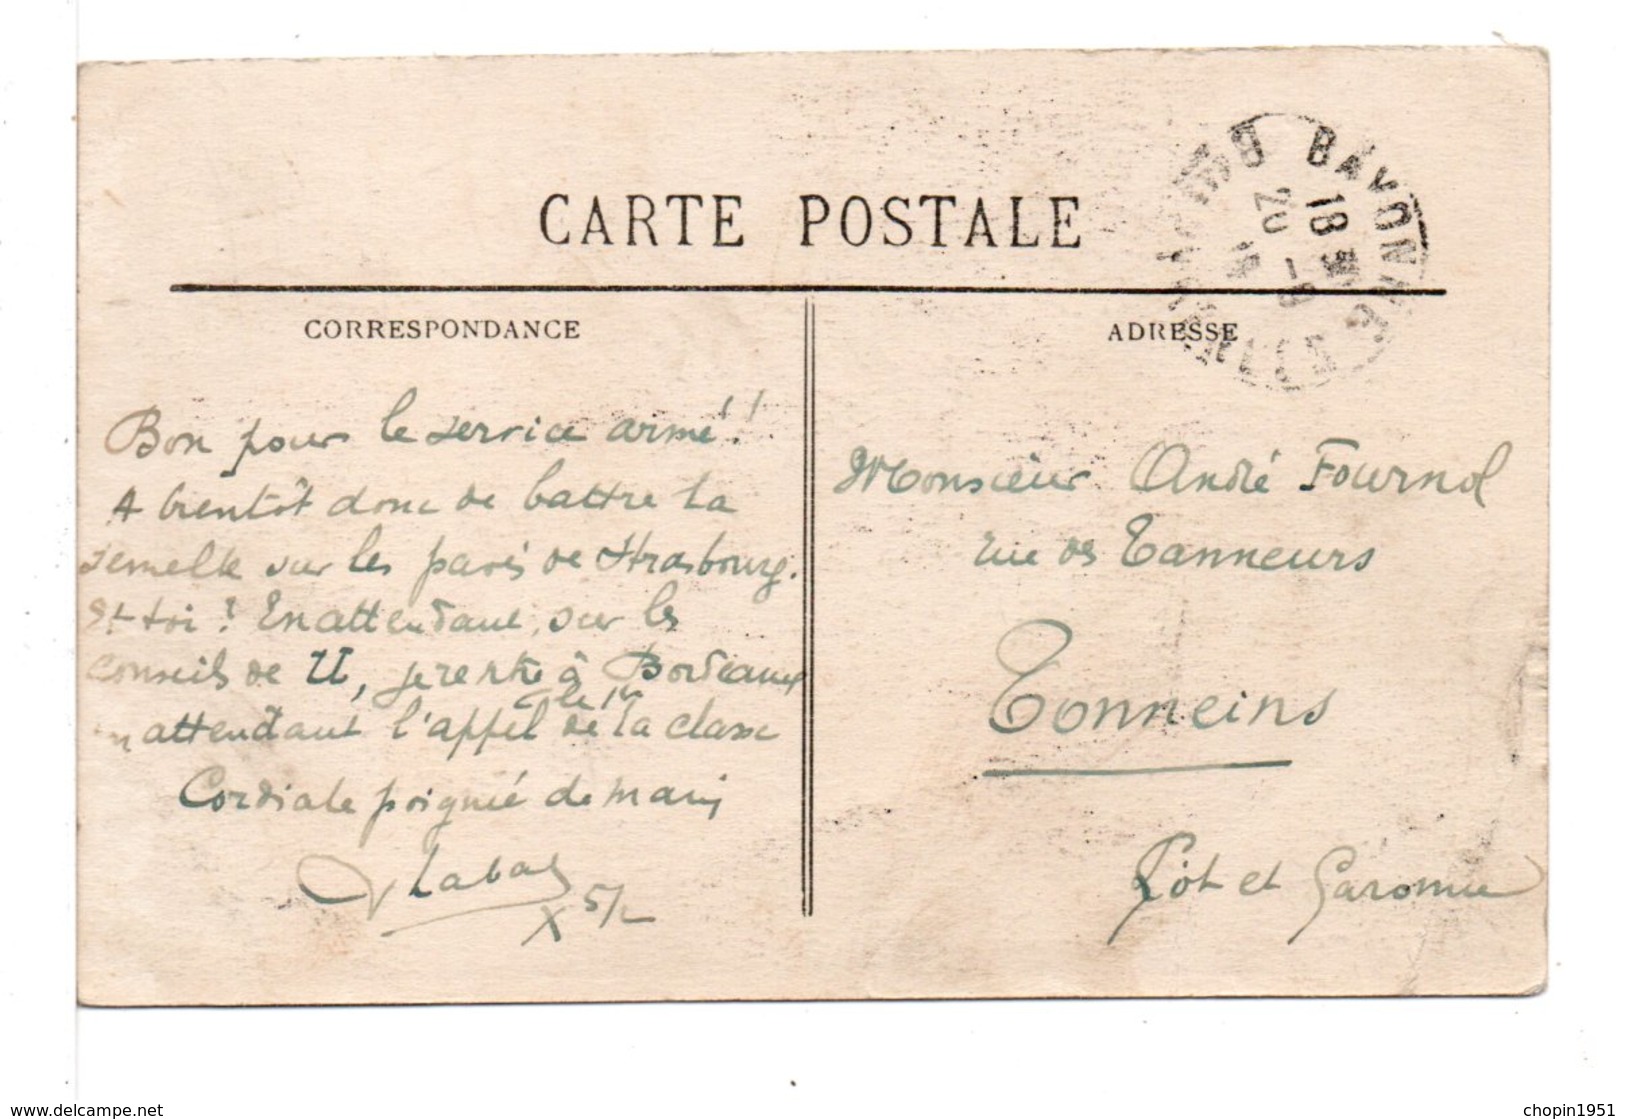 CARTE POSTALE
BAYONNE
18 30
20 - 9
CORRESPONDANCE
Bon pour le service armé!!
A bientôt donc de battre la
semelle sur les pavés de Strasbourg.
Et toi? En attendant, sur les
conseils de U, je reste à Bordeaux
en attendant l'appel de la classe
Cordiale poignée de main
Labat
X 5/2
ADRESSE
Monsieur André Fournol
rue des Tanneurs
Tonneins
Lot et Garonne
www.delcampe.net
chopin1951